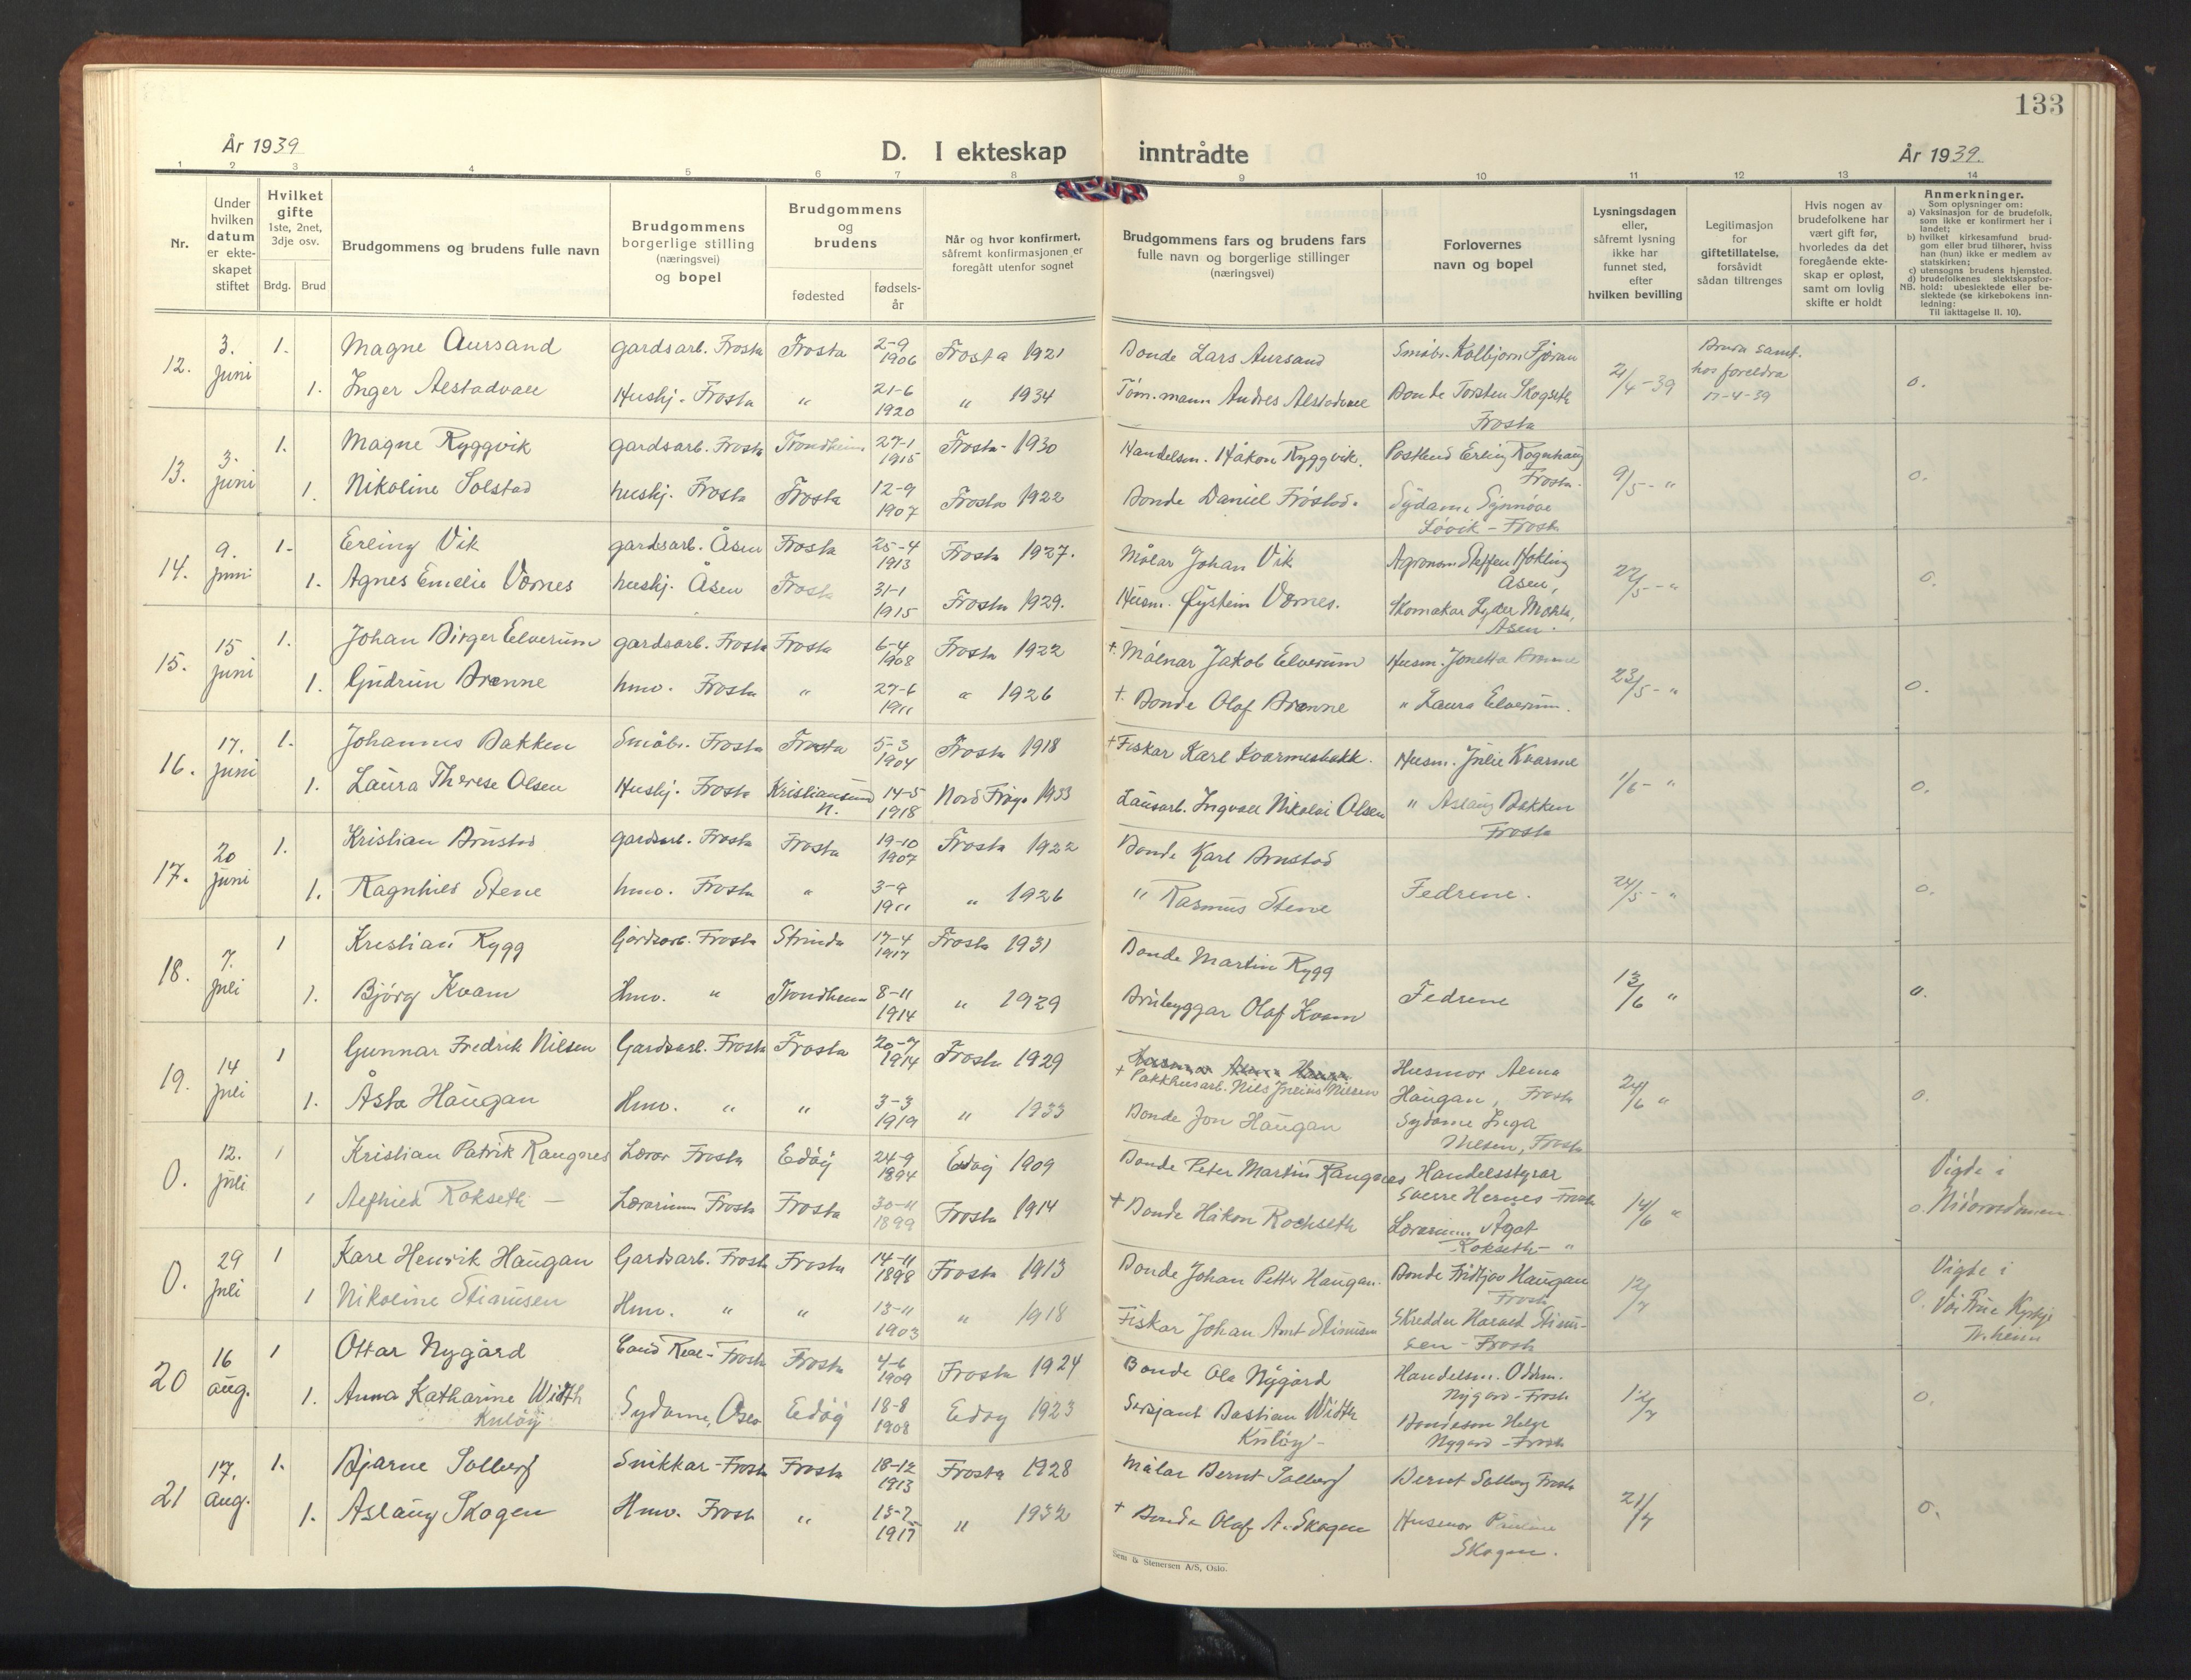 133
År 1939
D. I ekteskap inntrådte
År 1939.
1 2 3 4 5 6 7 8 9 10 11 12 13 14
Nr.
Under hvilken datum er ekteskapet stiftet
Hvilket gifte 1ste, 2net, 3dje osv.
Brdg. Brud
Brudgommens og brudens fulle navn
Brudgommens borgerlige stilling (næringsvei) og bopel
Brudgommens og brudens
fødested
fødselsår
Når og hvor konfirmert, såfremt konfirmasjonen er foregått utenfor sognet
Brudgommens fars og brudens fars fulle navn og borgerlige stillinger (næringsvei)
Forlovernes navn og bopel
Lysningsdagen eller, såfremt lysning ikke har funnet sted, efter hvilken bevilling
Legitimasjon for giftetillatelse, forsåvidt sådan tiltrenges
Hvis nogen av brudefolkene har vært gift før, hvorledes da det foregående ekteskap er opløst, samt om lovlig skifte er holdt
Anmerkninger.
Som oplysninger om:
a) Vaksinasjon for de brudefolk, som ikke er konfirmert her i landet;
b) hvilket kirkesamfund brudgom eller brud tilhører, hviss han (hun) ikke er medlem av statskirken;
c) utensogns brudens hjemsted.
d) brudefolkenes slektskapsforhold: ubeslektede eller beslektede (se kirkebokens innledning:
NB.
Til iakttagelse II. 10).
12. 3. juni 1. Magne Aursand gardsarb. Frosta Frosta 2-9 1906 Frosta 1921 Bonde Lars Aursand Småbr. Kolbjørn Fjøran 21/4-39 Brura samt. hos foreldra 17-4-39 0.
1. Inger Alstadvall Hushj. Frosta " 21-6 1920 " 1934 Tøm.mann Andres Alstadvall Bonde Torsten Skogseth Frosta
13. 3. juni 1. Magne Ryggvik gardsarb. Frosta Trondheim 27-1 1915 Frosta 1930 Handelsm. Håkon Ryggvik. Postbud Erling Rognhaug Frosta. 9/5- " 0.
1. Nikoline Solstad hushj. Frosta Frosta 12-9 1907 Frosta 1922 Bonde Daniel Frøstad. Sydame Synnøve Løvik - Frosta
14. 9. juni 1. Erling Vik gardsarb. Åsen Frosta 25-4 1913 Frosta 1927. Målar Johan Vik Agronom Steffen Hokling Åsen, 22/5- " 0.
1. Agnes Emelie Vornes hushj. Åsen Frosta 31-1 1915 Frosta 1929. Husm. Øystein Vornes. Skomakar Lyder Åsen.
15. 15 juni 1. Johan Birger Elverum gardsarb. Frosta Frosta 6-4 1908 Frosta 1922 + Mølnar Jakob Elverum Husm. Jonetta Brenne 23/5- " 0.
1. Gudrun Brenne hmo. Frosta " 27-6 1911 " 1926 +. Bonde Olaf Brenne " Laura Elverum.
16. 17. juni 1. Johannes Bakken Småbr. Frosta Frosta 5-3 1904 Frosta 1918 + Fiskar Karl Kvarmesbakk. Husm. Julie Kvarme 1/6- " 0.
1. Laura Therese Olsen Hushj. Frosta Kristiansund N. 14-5 1918 Nord Frøya 1933 Lausarb. Ingvald Nikolai Olsen " Aslaug Bakken Frosta
17. 20 juni 1. Kristian Brustad gardsarb. Frosta Frosta 19-10 1907 Frosta 1922 Bonde Karl Brustad Fedrene. 24/5- " 0.
1. Ragnhild Stene hmo. Frosta " 3-9 1911 " 1926 " Rasmus Stene
18. 7. juli 1 Kristian Rygg Gardsarb. Frosta Strinda 17-4 1917 Frosta 1931 Bonde Martin Rygg Fedrene 13/6 " 0.
1. Bjørg Kvam Hmo. " Trondheim 8-11 1914 " 1929 Brubyggar Olaf Kvam
19. 14 juli 1 Gunnar Fredrik Nilsen Gardsarb. Frosta Frosta 20-7 1914 Frosta 1929 + Pakkhusarb. Nils Julius Nilsen Husmor Alma Haugan, Frosta 24/6 " 0.
1. Åsta Haugan Hmo. " " 3-3 1919 " 1933 Bonde Jon Haugan Sydame Inga Nilsen, Frosta
0. 12. juli 1 Kristian Patrik Rangnes Lærar Frosta Edøy 24-9 1894 Edøy 1909 Bonde Peter Martin Rangnes Handelsstyrar Sverre Hernes - Frosta 14/6 " 0. Vigde i Nidarosdomen
1 Alfhild Rokseth - Lærarinne Frosta Frosta 30-11 1899 Frosta 1914 + Bonde Håkon Rochseth Lærarinne Ågot Rokseth - "
0. 29 juli 1 Karl Henrik Haugan Gardsarb. Frosta Frosta 14-11 1898 Frosta 1913 Bonde Johan Petter Haugan. Bonde Fridtjov Haugan Frosta 12/7 0. Vigde i Vår Frue Kyrkje Tr.heim
1 Nikoline Stinusen Hmo. " " 13-11 1903 " 1918 Fiskar Johan Arnt Stinusen Skreddar Harald Stinusen - Frosta
20 16 aug. 1 Ottar Nygård Cand Real - Frosta Frosta 4-6 1909 Frosta 1924 Bonde Ole Nygård Handelsm. Oddm. Nygård - Frosta 12/7 0.
1. Anna Katharine Width Kuløy Sydame, Oslo Edøy 18-8 1908 Edøy 1923 Sersjant Bastian Width Kuløy - Bondeson Helge Nygård - Frosta
21 17. aug. 1. Bjarne Solberg Snikkar - Frosta Frosta 18-12 1913 Frosta 1928 Målar Bernt Solberg Bernt Solberg Frosta 21/7 0.
1. Aslaug Skogen Hmo. Frosta " 1917 " 1932 + Bonde Olaf A. Skogen Husmor Pauline Skogen.
Sem & Stenersen A/S, Oslo.